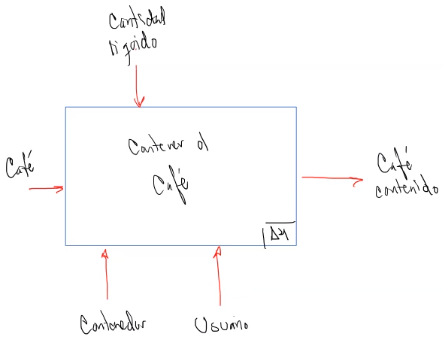 Cantidad
líquido
Contener el
Café
Café
Café
contenido
Contenedor
Usuario